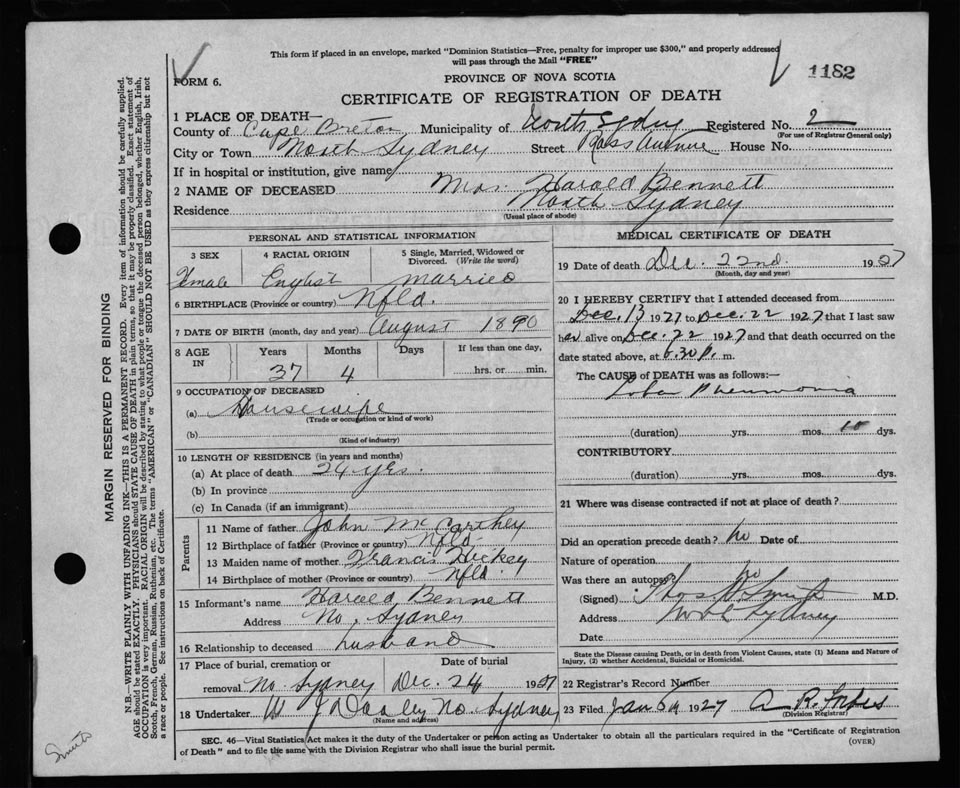 This form if placed in an envelope, marked "Dominion Statistics—Free, penalty for improper use $300," and properly addressed
will pass through the Mail "FREE"
FORM 6.
PROVINCE OF NOVA SCOTIA
1182
CERTIFICATE OF REGISTRATION OF DEATH
1 PLACE OF DEATH—
County of Cape Breton Municipality of North Sydney Registered No. 2
(For use of Registrar General only)
City or Town North Sydney Street Ross Avenue House No.
If in hospital or institution, give name
2 NAME OF DECEASED Mrs. Harold Bennett
Residence North Sydney
(Usual place of abode)
PERSONAL AND STATISTICAL INFORMATION
3 SEX 4 RACIAL ORIGIN 5 Single, Married, Widowed or Divorced. (Write the word)
Female English Married
6 BIRTHPLACE (Province or country) Nfld.
7 DATE OF BIRTH (month, day and year) August 1890
8 AGE IN Years Months Days If less than one day,
37 4 hrs. or min.
9 OCCUPATION OF DECEASED
(a) Housewife
(Trade or occupation or kind of work)
(b)
(Kind of industry)
10 LENGTH OF RESIDENCE (in years and months)
(a) At place of death 24 yrs.
(b) In province
(c) In Canada (if an immigrant)
Parents
11 Name of father John McCarthey
12 Birthplace of father (Province or country) Nfld.
13 Maiden name of mother Francis Hickey
14 Birthplace of mother (Province or country) Nfld.
15 Informant's name Harold Bennett
Address No. Sydney
16 Relationship to deceased husband
17 Place of burial, cremation or Date of burial
removal No. Sydney Dec. 24 1927
18 Undertaker W J Dooley No. Sydney
(Name and address)
MEDICAL CERTIFICATE OF DEATH
19 Date of death Dec. 22nd. 1927
(Month, day and year)
20 I HEREBY CERTIFY that I attended deceased from
Dec. 13 1927 to Dec. 22 1927 that I last saw
her alive on Dec. 22 1927 and that death occurred on
date stated above, at 6.30 P. m.
The CAUSE of DEATH was as follows:—
Lobar Pneumonia
(duration) yrs. mos. 10 dys.
CONTRIBUTORY
(duration) yrs. mos. dys.
21 Where was disease contracted if not at place of death?
Did an operation precede death? No Date of
Nature of operation
Was there an autopsy no
(Signed) Thos Smith M.D.
Address Sydney
Date
State the Disease causing Death, or in death from Violent Causes, state (1) Means and Nature of
Injury, (2) whether Accidental, Suicidal or Homicidal.
22 Registrar's Record Number
23 Filed Jan 1927 A R. Forbes
(Division Registrar)
SEC. 46—Vital Statistics Act makes it the duty of the Undertaker or person acting as Undertaker to obtain all the particulars required in the "Certificate of Registration
of Death" and to file the same with the Division Registrar who shall issue the burial permit.
(OVER)
MARGIN RESERVED FOR BINDING
N.B.—WRITE PLAINLY WITH UNFADING INK—THIS IS A PERMANENT RECORD. Every item of information should be carefully supplied.
AGE should be stated EXACTLY. PHYSICIANS should STATE CAUSE OF DEATH in plain terms, so that it may be properly classified. Exact statement of
OCCUPATION is very important. RACIAL ORIGIN will be described by stating to what people or tongue the deceased person belonged, whether English, Irish,
Scotch, French, German, Russian, Ruthenian, etc. The terms "AMERICAN" or "CANADIAN" SHOULD NOT BE USED as they express citizenship but not
a race or people. See instructions on back of Certificate.
Smith